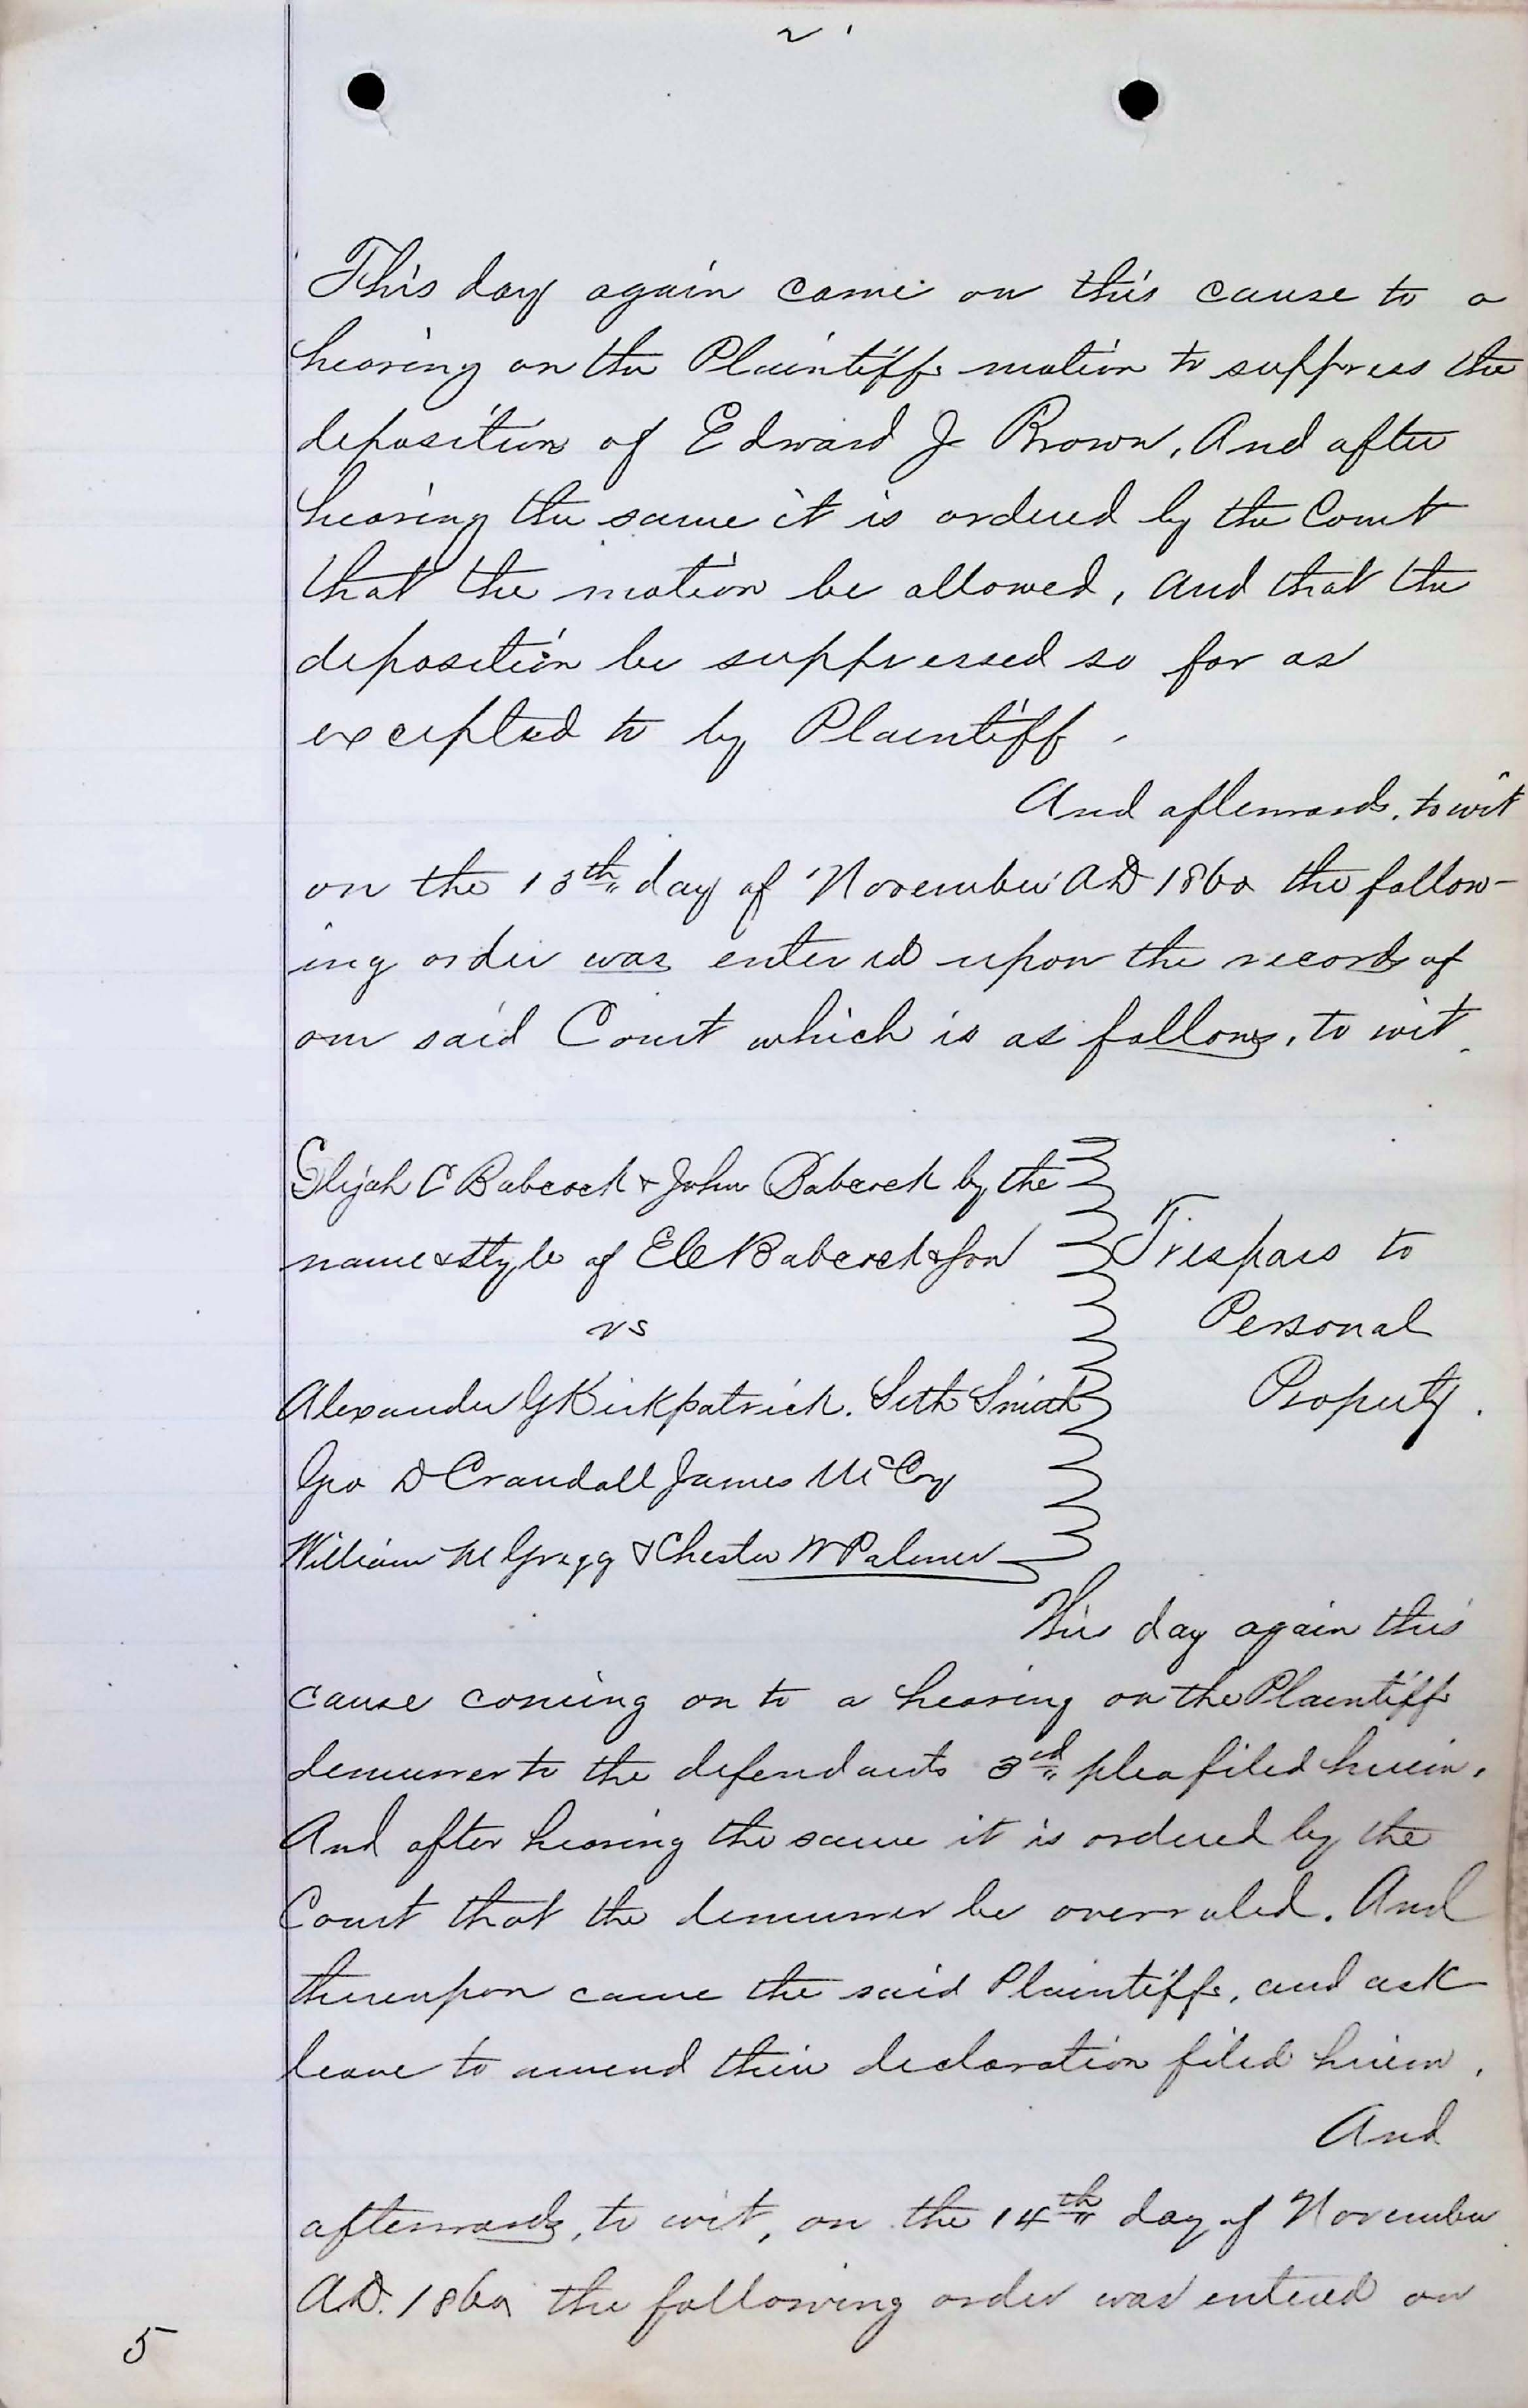 2
This day again came on this cause to a
hearing on the Plaintiffs motion to suppress the
deposition of Edward J Brown, And after
hearing the same it is ordered by the Court
that the motion be allowed, and that the
deposition be suppressed so far as
excepted to by Plaintiff.
And afterwards, to wit
on the 13th day of November AD 1860 the follow-
ing order was entered upon the records of
our said Court which is as follows, to wit.
Elijah C Babcock & John Babcock by the
name & style of E C Babcock & Son
Trespass to
vs
Personal
Alexander G Kirkpatrick. Seth Smith
Property.
Geo D Crandall James McCoy
William M Gregg & Chester W Palmer
This day again this
cause coming on to a hearing on the Plaintiffs
demurrer to the defendants 3rd plea filed herein.
And after hearing the same it is ordered by the
Court that the demurrer be overruled. And
thereupon came the said Plaintiffs, and ask
leave to amend their declaration filed herein.
And
afterwards, to wit, on the 14th day of November
A.D. 1860 the following order was entered on
5